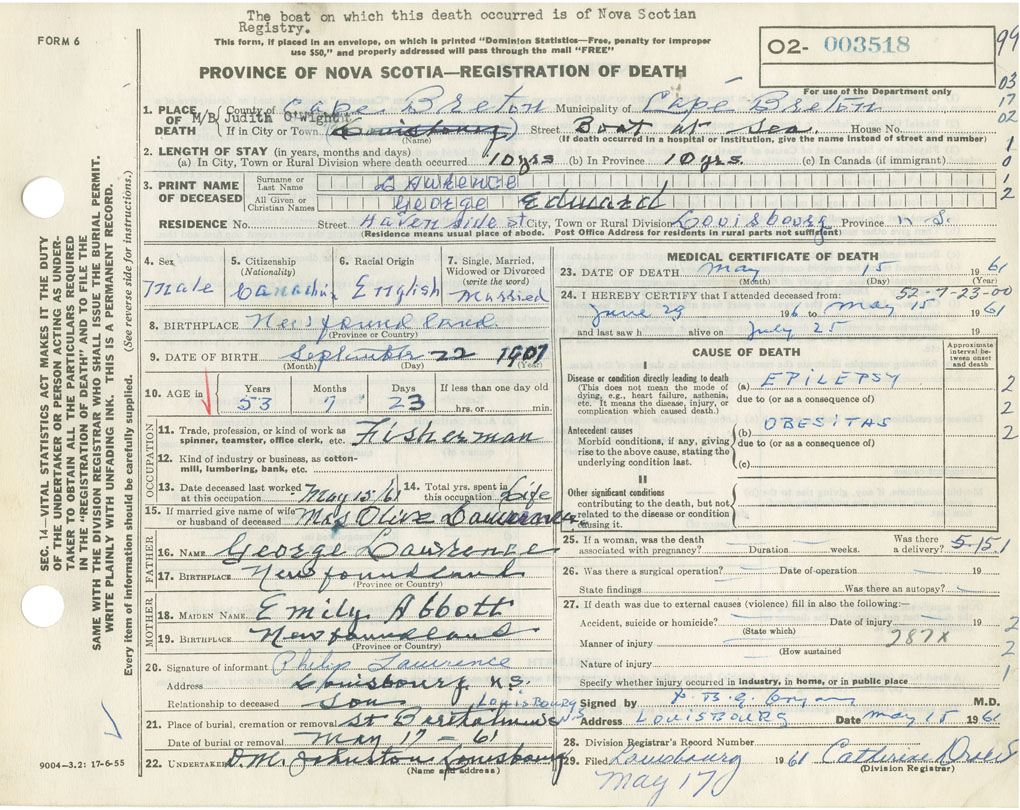 The boat on which this death occurred is of Nova Scotian
Registry.
FORM 6
This form, if placed in an envelope, on which is printed "Dominion Statistics—Free, penalty for improper
use $50," and properly addressed will pass through the mail "FREE"
O2- 003518
For use of the Department only
99
03
17
02
PROVINCE OF NOVA SCOTIA—REGISTRATION OF DEATH
1. PLACE OF DEATH
County of Cape Breton Municipality of Cape Breton
M/B Judith O'Wight
If in City or Town (Louisbourg) Street Boat at Sea. House No.
(Name) (If death occurred in a hospital or institution, give the name instead of street and number)
2. LENGTH OF STAY (in years, months and days)
(a) In City, Town or Rural Division where death occurred 10 yrs (b) In Province 10 yrs. (c) In Canada (if immigrant)
3. PRINT NAME OF DECEASED
Surname or Last Name LAWRENCE
All Given or Christian Names George Edward
RESIDENCE No. Street Havenside st City, Town or Rural Division Louisbourg Province N.S.
(Residence means usual place of abode. Post Office Address for residents in rural parts not sufficient)
4. Sex Male
5. Citizenship (Nationality) Canadian
6. Racial Origin English
7. Single, Married, Widowed or Divorced (write the word) Married
8. BIRTHPLACE Newfoundland
(Province or Country)
9. DATE OF BIRTH September 22 1907
(Month) (Day) (Year)
10. AGE in Years 53 Months 7 Days 23 If less than one day old hrs. or min.
OCCUPATION
11. Trade, profession, or kind of work as spinner, teamster, office clerk, etc. Fisherman
12. Kind of industry or business, as cotton-mill, lumbering, bank, etc.
13. Date deceased last worked at this occupation May 15/61
14. Total yrs. spent in this occupation Life
15. If married give name of wife or husband of deceased May Olive Lawrence
FATHER
16. NAME George Lawrence
17. BIRTHPLACE Newfoundland
(Province or Country)
MOTHER
18. MAIDEN NAME Emily Abbott
19. BIRTHPLACE Newfoundland
(Province or Country)
20. Signature of informant Philip Lawrence
Address Louisbourg N.S.
Relationship to deceased Son
21. Place of burial, cremation or removal St Bartholmew's LOUISBOURG N.S.
Date of burial or removal May 17 - 61
22. UNDERTAKER D.M. Johnston Louisbourg
(Name and address)
MEDICAL CERTIFICATE OF DEATH
23. DATE OF DEATH May 15 1961
(Month) (Day) (Year)
52-7-23-00
24. I HEREBY CERTIFY that I attended deceased from:
June 29 196 to May 15 1961
and last saw h alive on July 25 19
CAUSE OF DEATH
Approximate interval between onset and death
I
Disease or condition directly leading to death
(This does not mean the mode of dying, e.g., heart failure, asthenia, etc. It means the disease, injury, or complication which caused death.)
(a) EPILEPSY
due to (or as a consequence of)
Antecedent causes
Morbid conditions, if any, giving rise to the above cause, stating the underlying condition last.
(b) OBESITAS
due to (or as a consequence of)
(c)
II
Other significant conditions
contributing to the death, but not related to the disease or condition causing it.
25. If a woman, was the death associated with pregnancy? Duration weeks. Was there a delivery? 5-15 1
26. Was there a surgical operation? Date of operation 19
State findings Was there an autopsy?
27. If death was due to external causes (violence) fill in also the following:—
Accident, suicide or homicide? Date of injury 19
(State which)
Manner of injury 287X
(How sustained)
Nature of injury
Specify whether injury occurred in industry, in home, or in public place
Signed by M.D.
Address LOUISBOURG Date May 15 1961
28. Division Registrar's Record Number
29. Filed Louisbourg 1961 Catherine
May 17 (Division Registrar)
SEC. 14—VITAL STATISTICS ACT MAKES IT THE DUTY
OF THE UNDERTAKER OR PERSON ACTING AS UNDER-
TAKER TO OBTAIN ALL THE PARTICULARS REQUIRED
IN THE "REGISTRATION OF DEATH" AND TO FILE THE
SAME WITH THE DIVISION REGISTRAR WHO SHALL ISSUE THE BURIAL PERMIT.
WRITE PLAINLY WITH UNFADING INK. THIS IS A PERMANENT RECORD.
Every item of information should be carefully supplied. (See reverse side for instructions.)
9004-3.2: 17-6-55